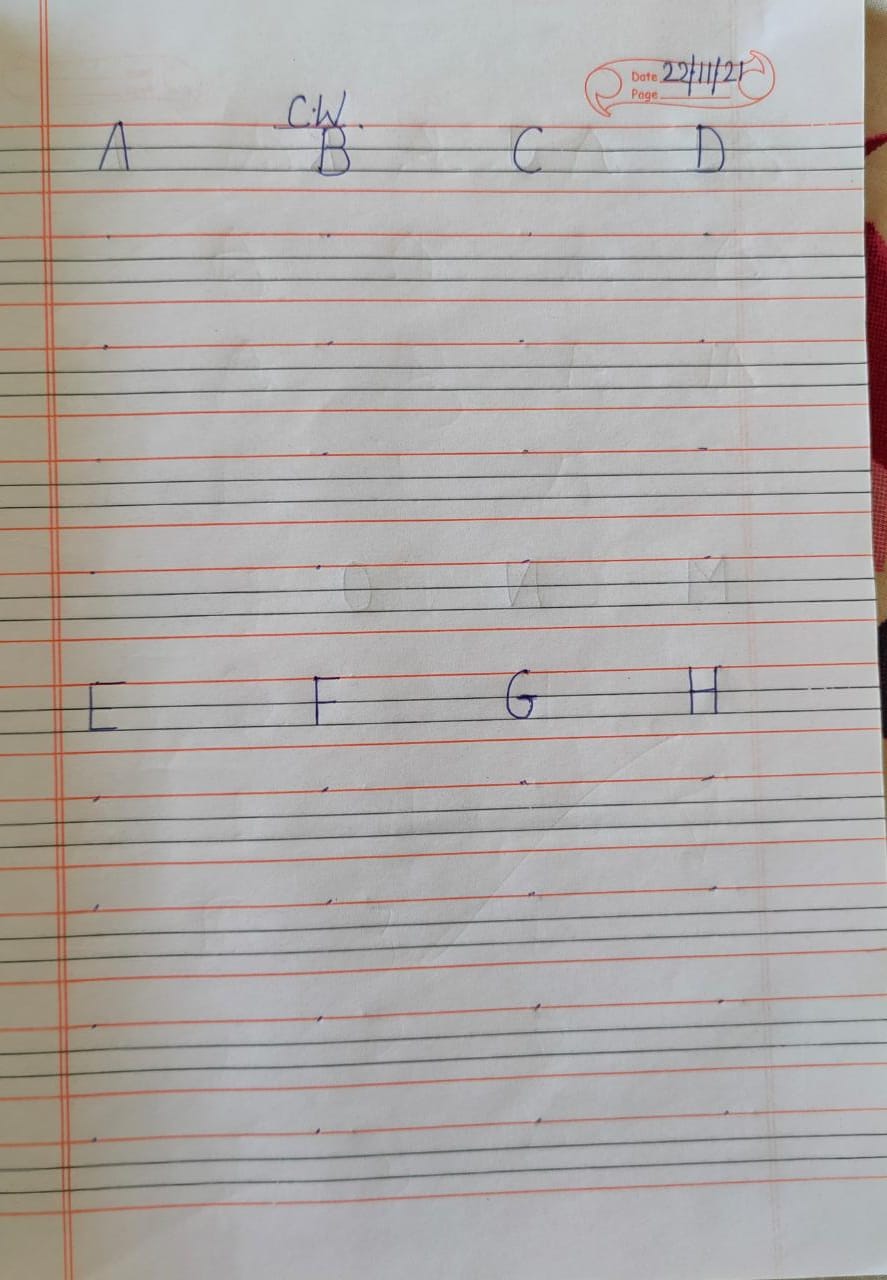 Date 22/11/21
Page
C.W.
A B C D
E F G H